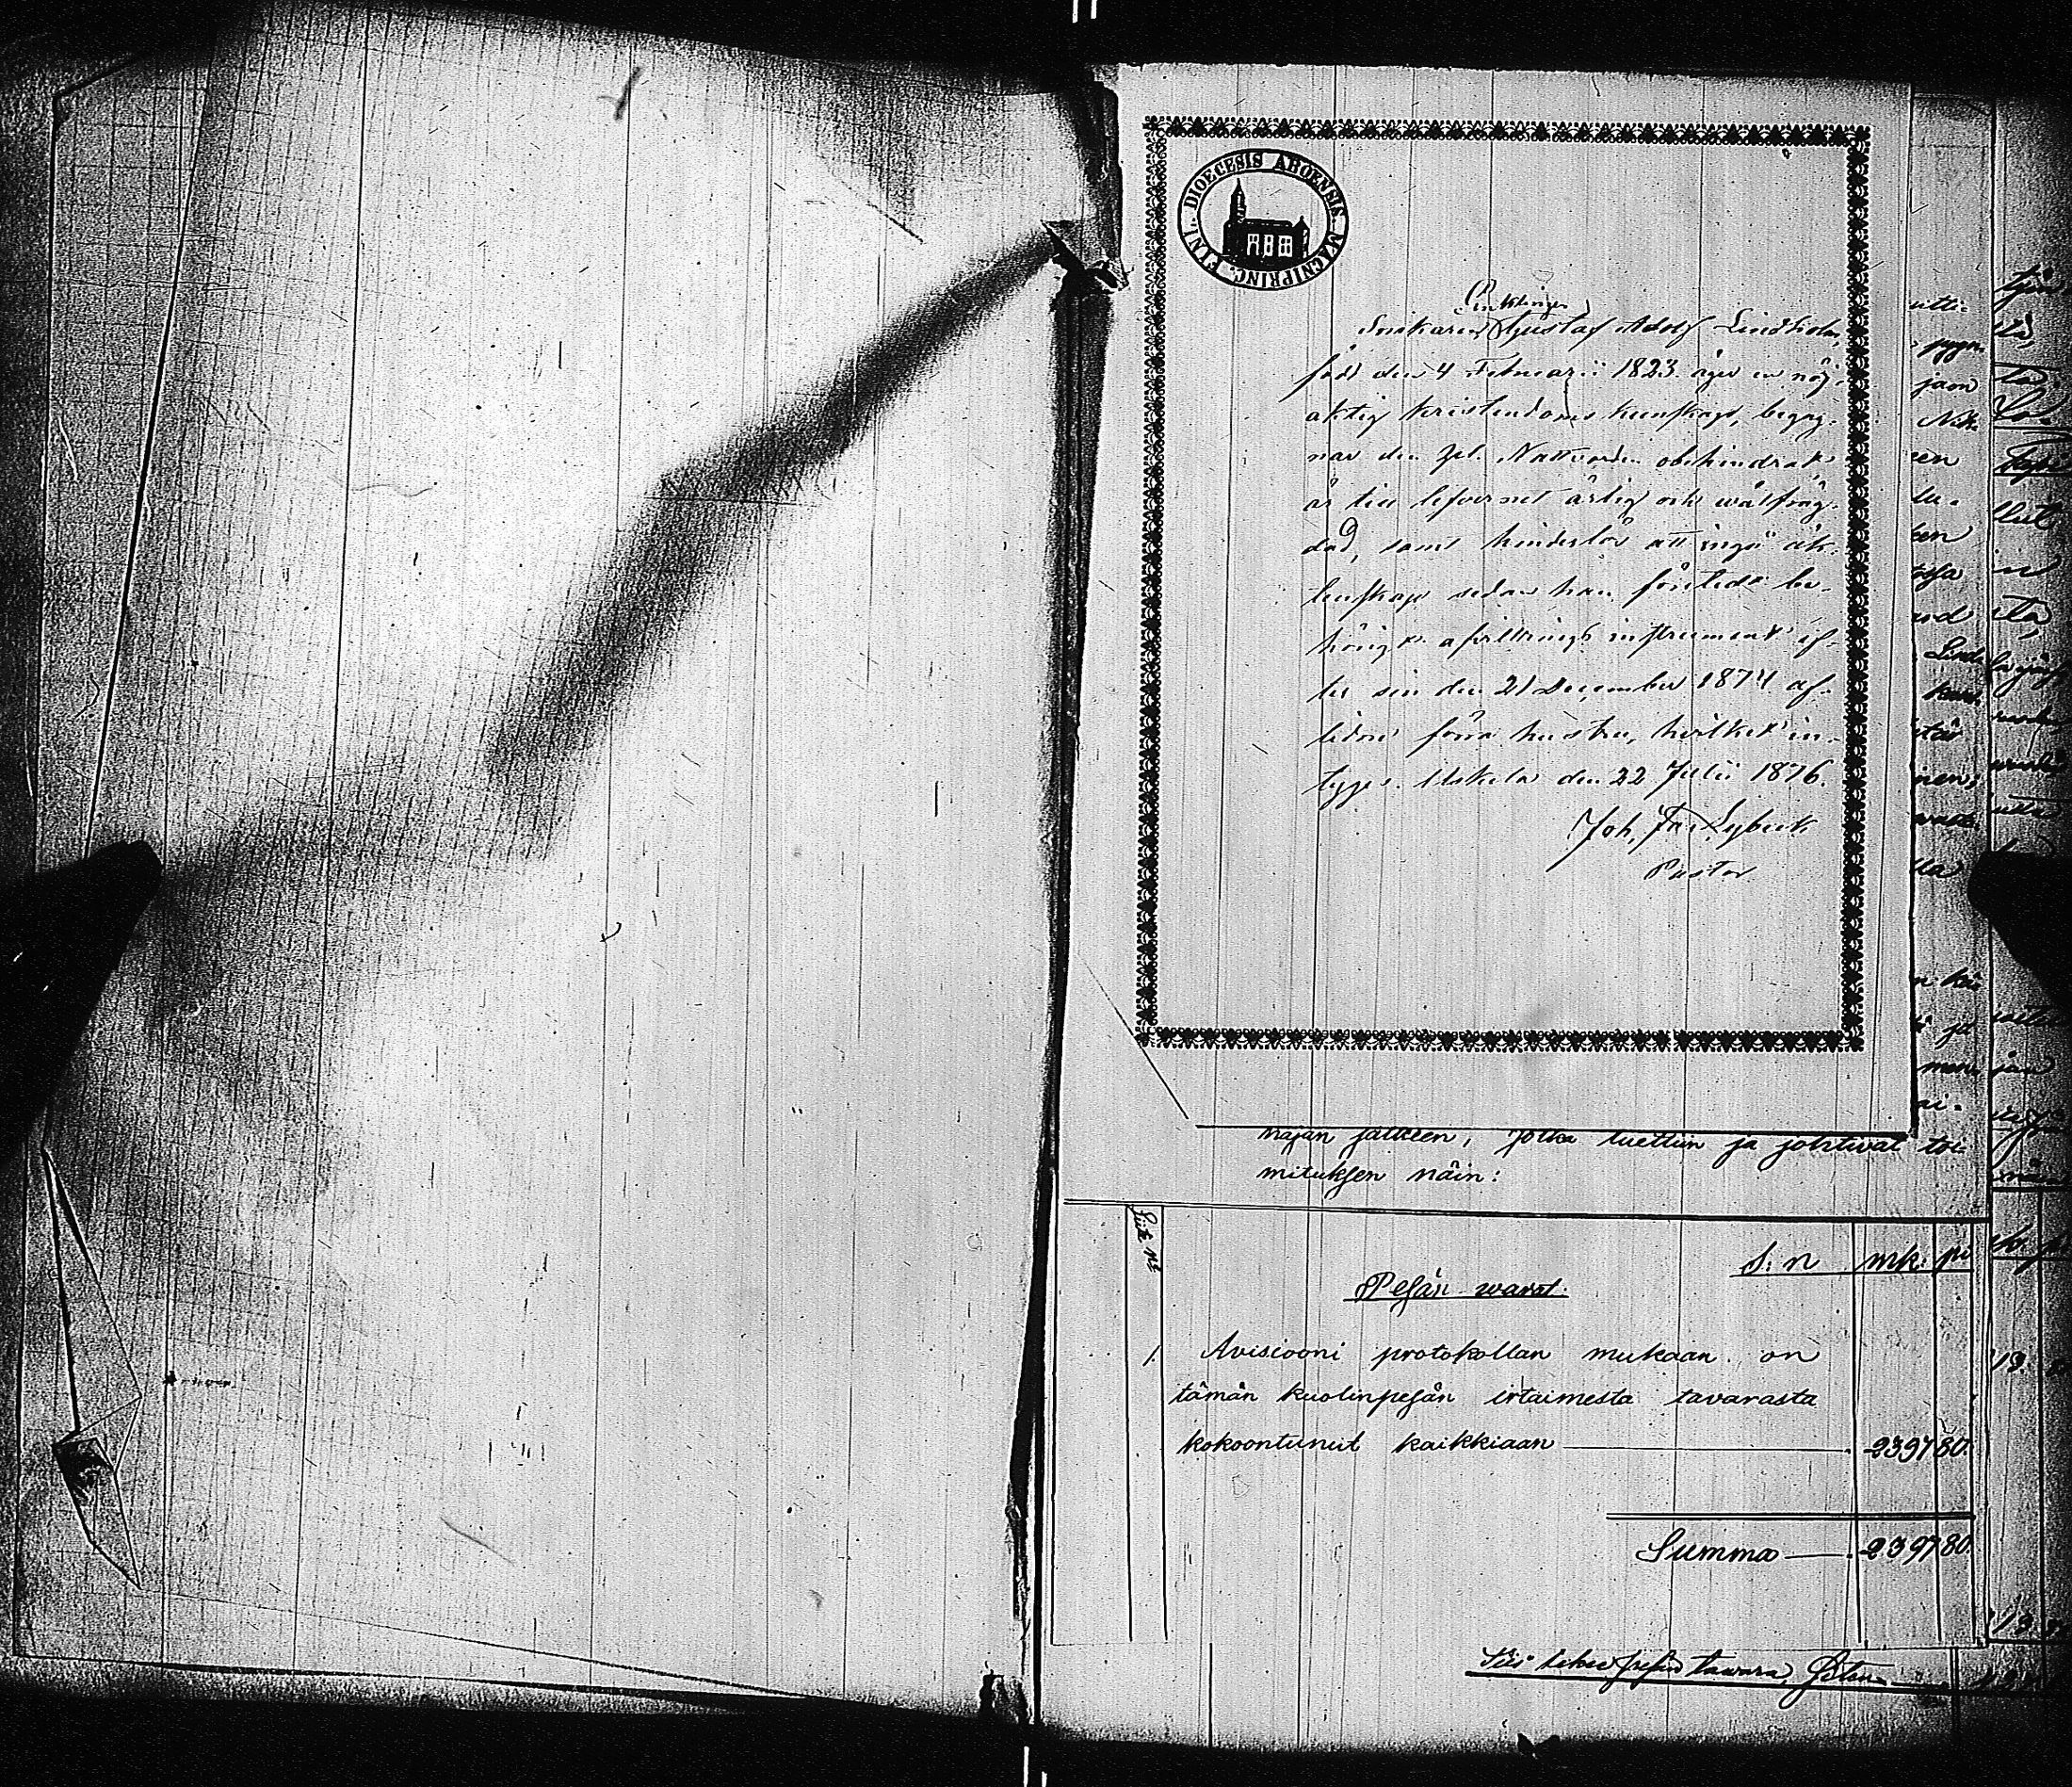 FINL. DIOECESIS ABOENSIS MAGNIPRINC.
Enklingen
Snikaren Gustaf Adolf Lindholm,
född den 4 Februarii 1823 äger en nöj-
aktig kristendoms kunskap, begag-
nar den Hel. Nattvarden obehindradt
är till lefvernet ärlig och wälfräg-
dad, samt hinderlös att ingå äk-
tenskap sedan han företedt be-
hörigt afvittrings instrument ef-
ter sin den 21 December 1874 af-
lidne förra hustru, hvilket in-
tygges. Uskela den 22 Julii 1876.
Joh. Lybeck
Pastor
majan jälkeen, jotka luettiin ja johtivat toi-
mituksen näin:
Liite №
S: n mk: pi
Pesän warat.
1. Avisiooni protokollan mukaan on
tämän kuolinpesän irtaimesta tavarasta
kokoontunut kaikkiaan 239780.
Summa 239780.